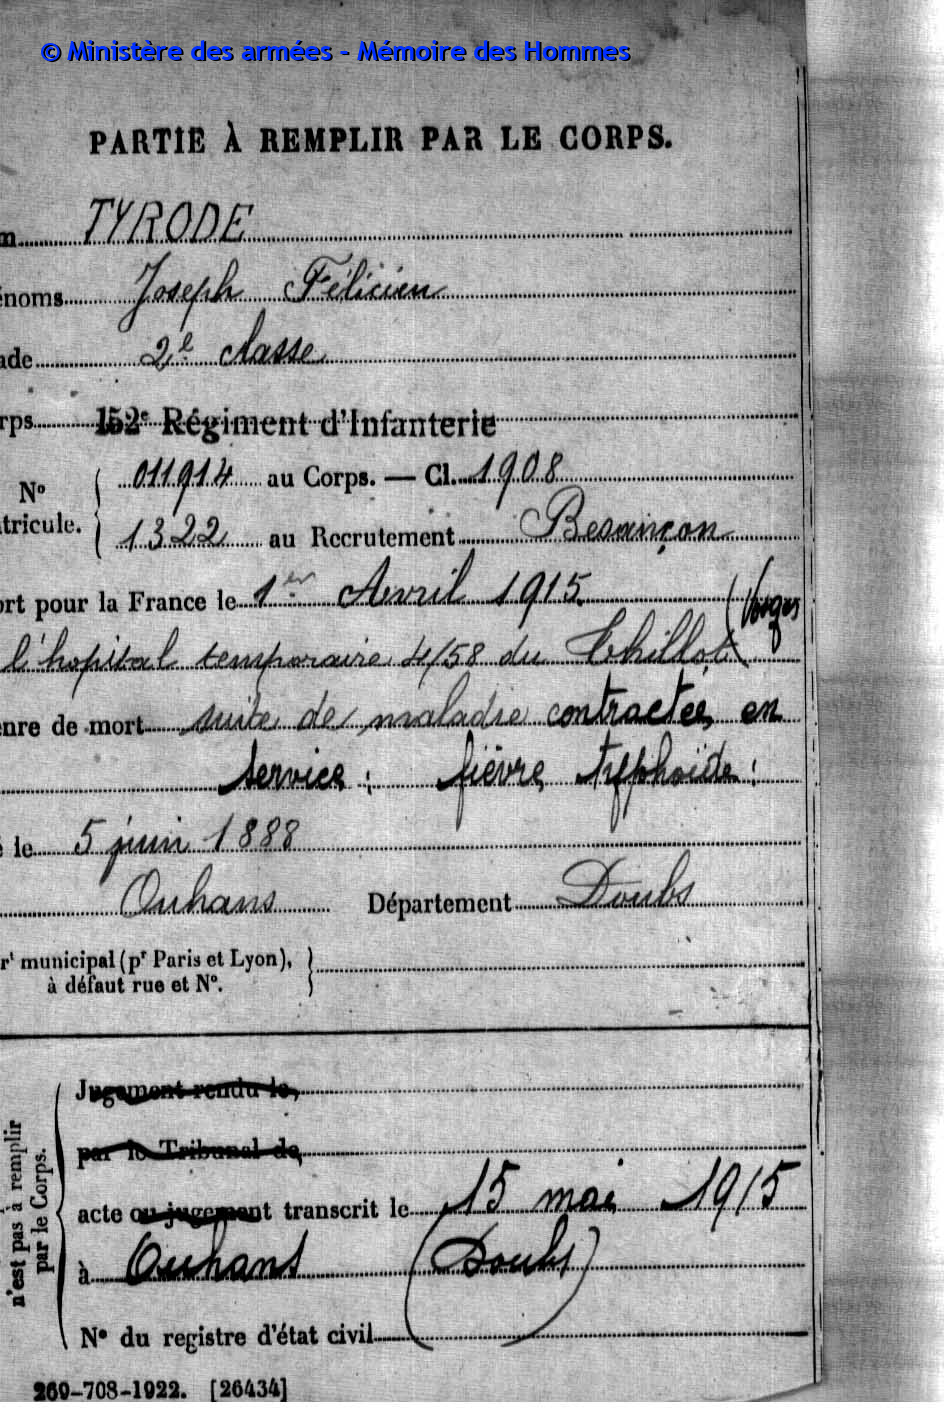 © Ministère des armées - Mémoire des Hommes
PARTIE À REMPLIR PAR LE CORPS.
m TYRODE
énoms Joseph Félicien
ade 2e classe
rps 152e Régiment d'Infanterie
No 011914 au Corps. — Cl. 1908
tricule. 1322 au Recrutement Besançon
ort pour la France le 1er Avril 1915
l'hopital temporaire 4/58 du Thillot (Vosges
enre de mort suite de maladie contractée en
service : fièvre typhoïde :
é le 5 juin 1888
Ouhans Département Doubs
rt municipal (pr Paris et Lyon),
à défaut rue et No.
n'est pas à remplir
par le Corps.
Jugement rendu le,
par le Tribunal de
acte ou jugement transcrit le 15 mai 1915
à Ouhans (Doubs)
No du registre d'état civil
269-708-1922. [26434]